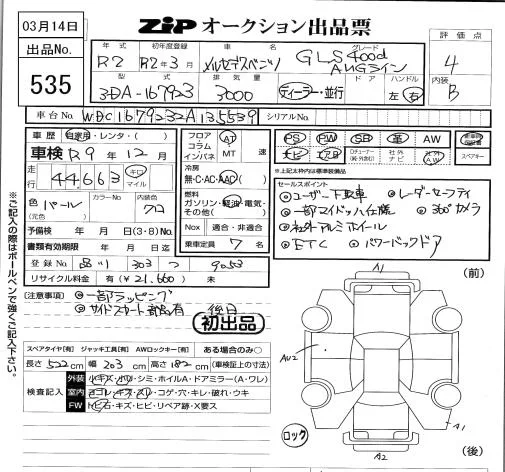 03月14日
ZIP オークション出品票
出品No.
535
評価点
4
内装
B
年式
R2
初年度登録
R2年3月
車名
メルセデスベンツ
グレード
GLS400d
AMGライン
型式
3DA-167923
排気量
3000
ドア
ディーラー・並行
ハンドル
左・右
車台No. WDC1679232A135539
シリアルNo.
車歴 自家用・レンタ・( )
車検 R9年12月
走行 44,663 キロ マイル
色 パール
(元色)
カラーNo
内装色
クロ
予備検 年 月 日(3・8)No.
書類有効期限 年 月 日迄
登録No. 品川 303 つ 9053
リサイクル料金 有(¥21,660) 未
フロア
コラム
インパネ
AT
MT
速
冷房
無・C・AC・AAC( )
燃料
ガソリン・軽油・電気・
その他( )
Nox 適合・非適合
乗車定員 7 名
PS PW SR 革 AW
ナビ エアB
社外
ナビ
社外
AW
スペアキー
※上記太枠は標準装備品
セールスポイント
ユーザー下取車
レーダーセーフティ
一部マイバッハ仕様
360°カメラ
社外アルミホイール
ETC
パワーバックドア
[注意事項]
一部ラッピング
サイドステー卜部品有 後日
初出品
※ご記入の際はボールペンで強くご記入下さい。
スペアタイヤ[有] ジャッキ工具[有] AWロックキー[有] ある場合のみ○
長さ 522cm 幅 203cm 高さ 182cm (車検証上の寸法)
検査記入
外装 小キズ・小凹・シミ・ホイルA・ドアミラー(A・ワレ)
室内 ヨゴレ・キズ・スレ・コゲ・穴・キレ・破れ・ウキ
FW トビ石・キズ・ヒビ・リペア跡・X要ス
(前)
A1
AU2
ロック
A2
A1
(後)